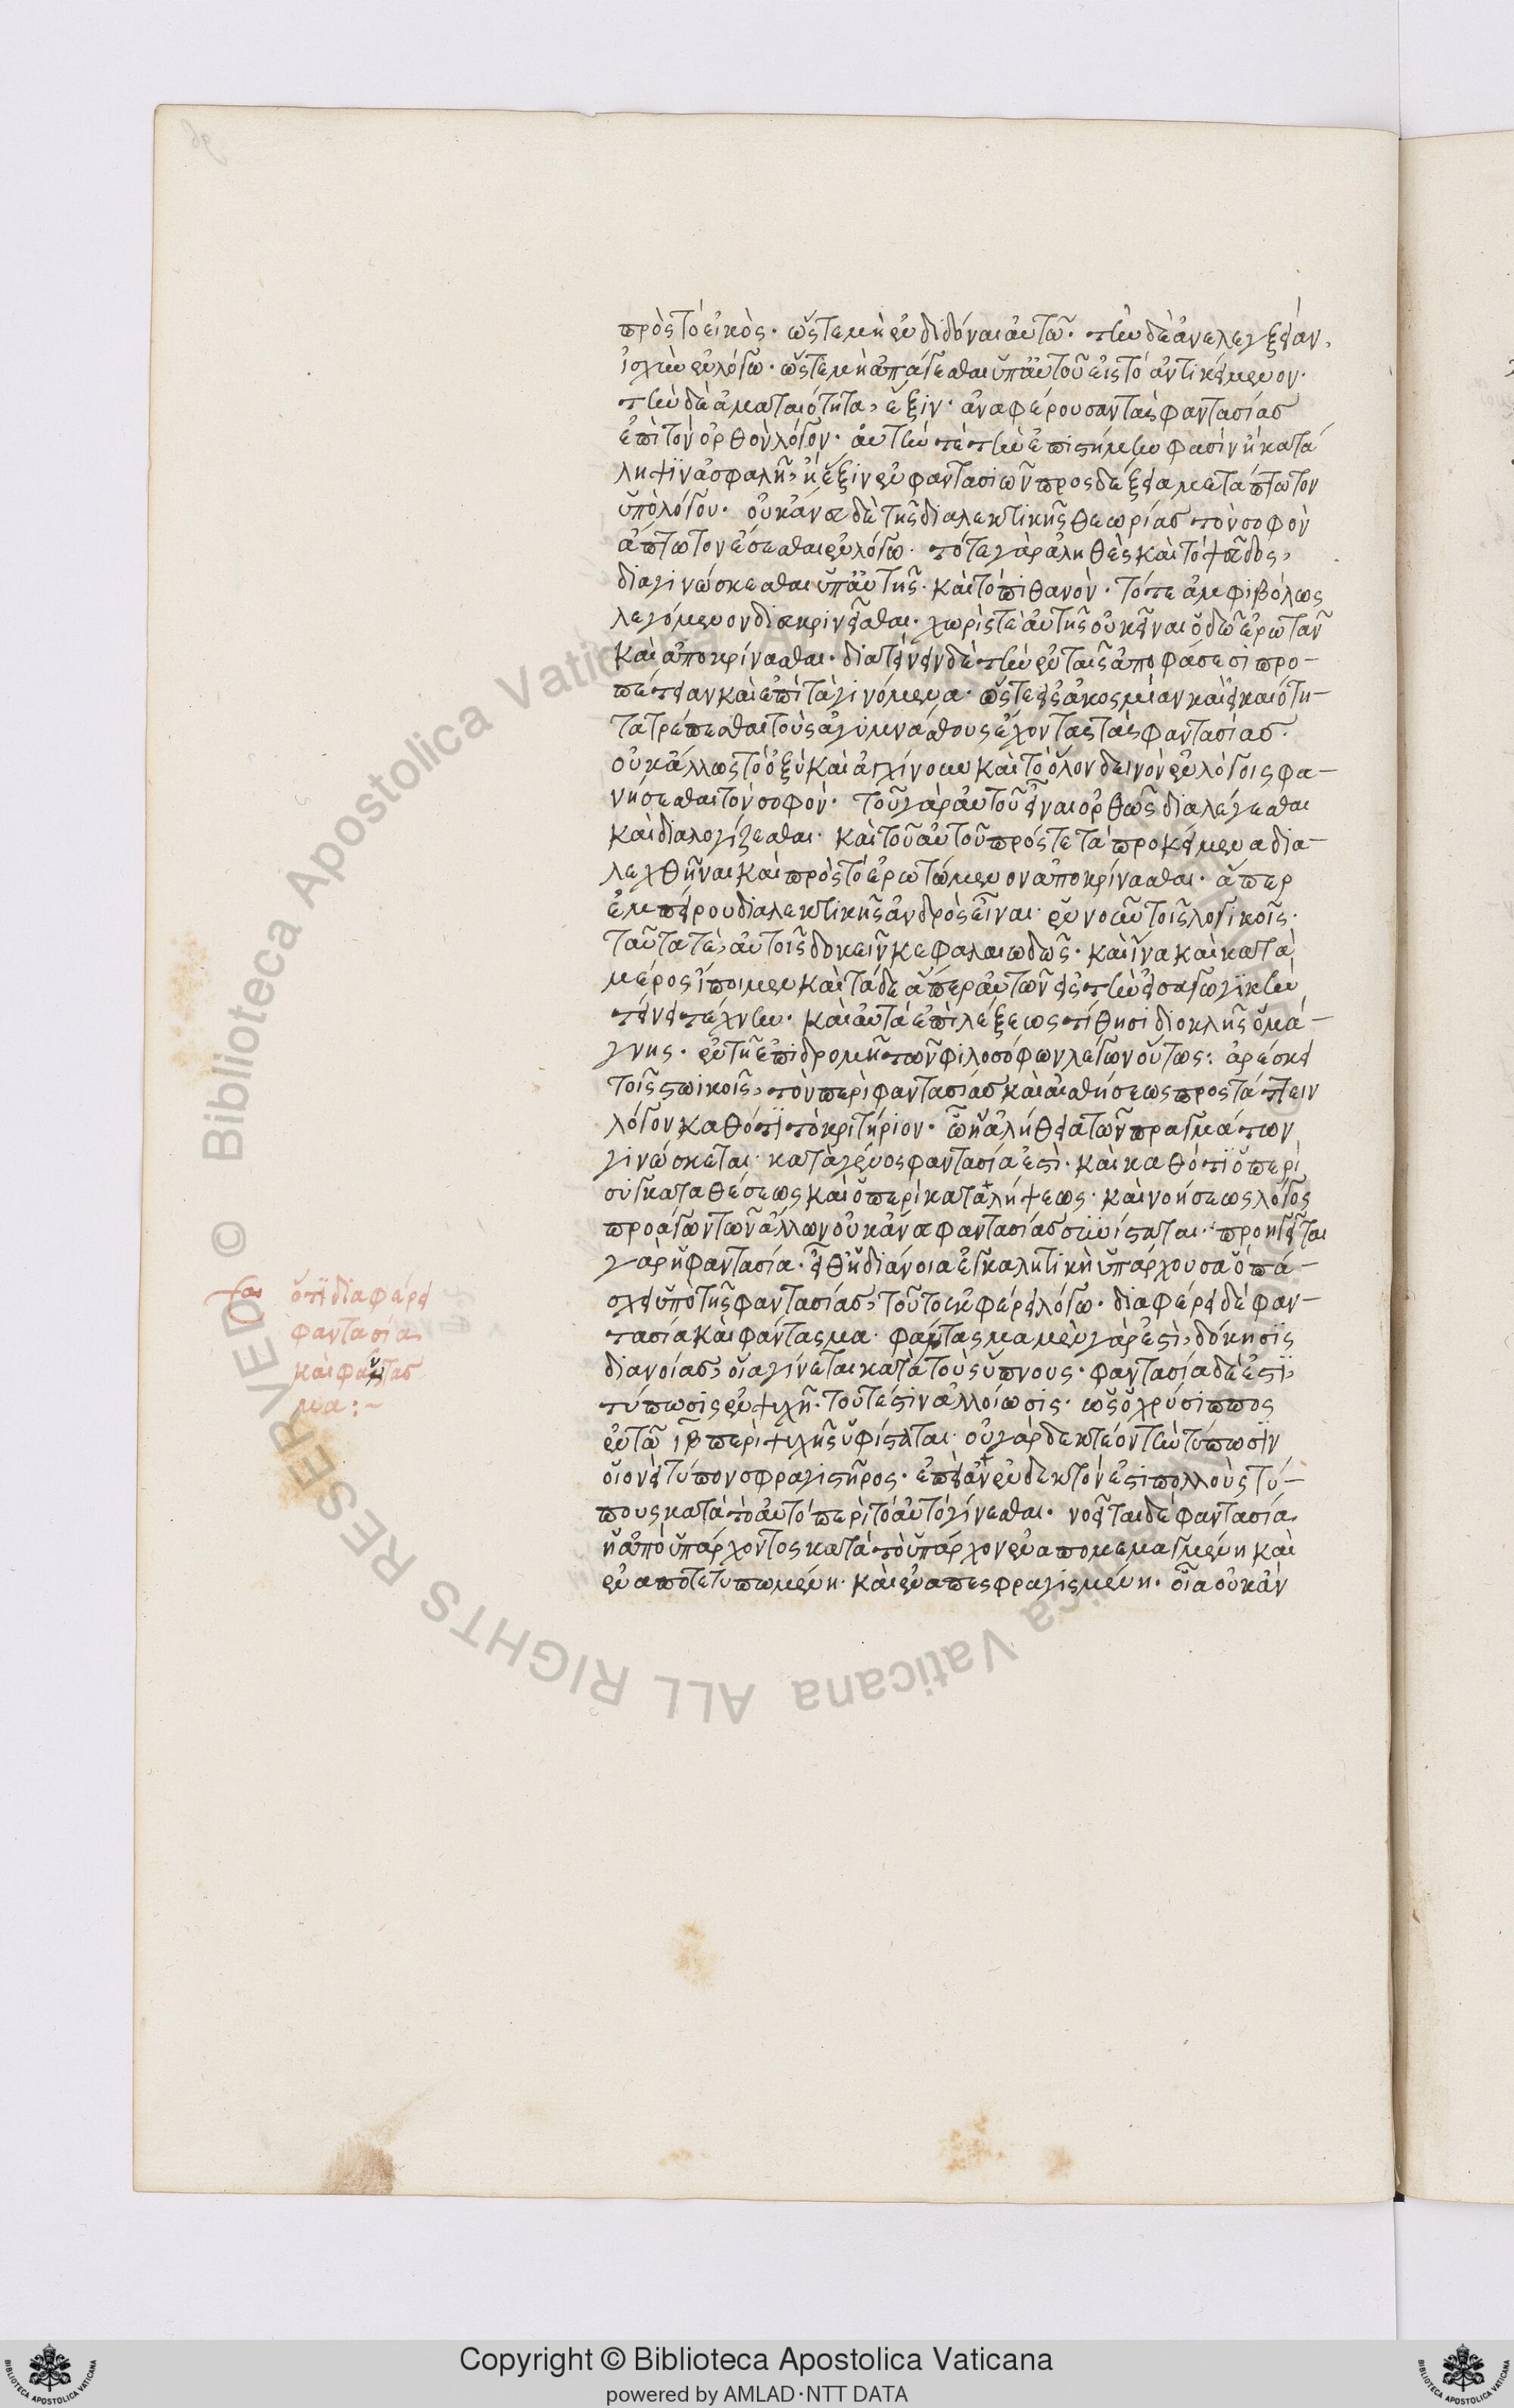 πρὸς τὸ εἰκὸς· ὥστε μὴ ἐνδιδόναι αὐτῶ· τὴν δὲ ἀνελεγξείαν,
ἰσχὺν ἐν λόγω· ὥστε μὴ ἀπάγεσθαι ὑπ' αὐτοῦ εἰς τὸ ἀντικείμενον·
τὴν δὲ ἀματαιότητα, ἕξιν· ἀναφέρουσαν τὰς φαντασίας
ἐπὶ τὸν ὀρθὸν λόγον· αὐτήν τε τὴν ἐπιστήμην φασὶν ἢ κατά
ληψιν ἀσφαλῆ, ἢ ἕξιν ἐν φαντασιῶν προσδέξει ἀμετάπτωτον
ὑπὸ λόγου· οὐκ ἄνευ δὲ τῆς διαλεκτικῆς θεωρίας τὸν σοφὸν
ἄπτωτον ἔσεσθαι ἐν λόγω· τό τε γὰρ ἀληθὲς καὶ τὸ ψεῦδος,
διαγινώσκεσθαι ὑπ' αὐτῆς· καὶ τὸ πιθανὸν· τό τε ἀμφιβόλως
λεγόμενον διακρινεῖσθαι· χωρίς τε αὐτῆς οὐκ εἶναι ὁδῶ ἐρωτᾶν
καὶ ἀποκρίνασθαι· διατείνειν δὲ τὴν ἐν ταῖς ἀποφάσεσι προ-
πέτειαν καὶ ἐπὶ τὰ γινόμενα· ὥστε εἰς ἀκοσμίαν καὶ εἰκαιότη-
τα τρέπεσθαι τοὺς ἀγυμνάστους ἔχοντας τὰς φαντασίας·
οὐκ ἄλλως τὸ ὀξὺ καὶ ἀγχίνουν καὶ τὸ ὅλον δεινὸν ἐν λόγοις φα-
νήσεσθαι τὸν σοφὸν· τοῦ γὰρ αὐτοῦ εἶναι ὀρθῶς διαλέγεσθαι
καὶ διαλογίζεσθαι· καὶ τοῦ αὐτοῦ πρός τε τὰ προκείμενα δια-
λεχθῆναι καὶ πρὸς τὸ ἐρωτώμενον ἀποκρίνασθαι· ἅπερ
ἐμπείρου διαλεκτικῆς ἀνδρὸς εἶναι· ἐν οὖν τοῖς λογικοῖς·
ταῦτά τε, αὐτοῖς δοκεῖν κεφαλαιωδῶς· καὶ ἵνα καὶ κατὰ
μέρος εἴποιμεν καὶ τάδε ἅπερ αὐτῶν εἰς τὴν εἰσαγωγικὴν
τείνει τέχνην· καὶ αὐτὰ ἐπὶ λέξεως τίθησι διοκλῆς ὁ μά-
γνης· ἐν τῆ ἐπιδρομῆ τῶν φιλοσόφων λέγων οὕτως: ἀρέσκει
τοῖς στωικοῖς, τὸν περὶ φαντασίας καὶ αἰσθήσεως προστάττειν
λόγον καθότι τὸ κριτήριον· ὧ ἡ ἀλήθεια τῶν πραγμάτων
γινώσκεται· κατὰ γένος φαντασία ἐστὶ· καὶ καθότι ὁ περὶ
συγκαταθέσεως καὶ ὁ περὶ καταλήψεως· καὶ νοήσεως λόγος
προάγων τῶν ἄλλων οὐκ ἄνευ φαντασίας συνίσταται· προηγεῖται
γὰρ ἡ φαντασία· εἶθ' ἡ διάνοια ἐγκαλητικὴ ὑπάρχουσα ὃ πά-
σχει ὑπὸ τῆς φαντασίας, τοῦτο ἐκφέρει λόγω· διαφέρει δὲ φαν-
τασία καὶ φάντασμα· φάντασμα μὲν γάρ ἐστὶ, δόκησις
διανοίας, οἵα γίνεται κατὰ τοὺς ὕπνους· φαντασία δέ ἐστι,
τύπωσις ἐν ψυχῆ· τουτέστιν ἀλλοίωσις· ὡς ὁ χρύσιππος
ἐν τῶ ιβ περὶ ψυχῆς ὑφίσταται· οὐ γὰρ δεκτέον τὴν τύπωσιν
οἱονεὶ τύπον σφραγιστῆρος· ἐπεὶ ἀνένδεκτόν ἐστι πολλοὺς τύ-
πους κατὰ τὸ αὐτὸ περὶ τὸ αὐτὸ γίνεσθαι· νοεῖται δὲ φαντασία
ἡ ἀπὸ ὑπάρχοντος κατὰ τὸ ὑπάρχον ἐναπομεμαγμένη καὶ
ἐναποτετυπωμένη· καὶ ἐναπεσφραγισμένη· οἵα οὐκ ἂν
ὅτι διαφέρει
φαντασία
καὶ φάντασ
μα:~